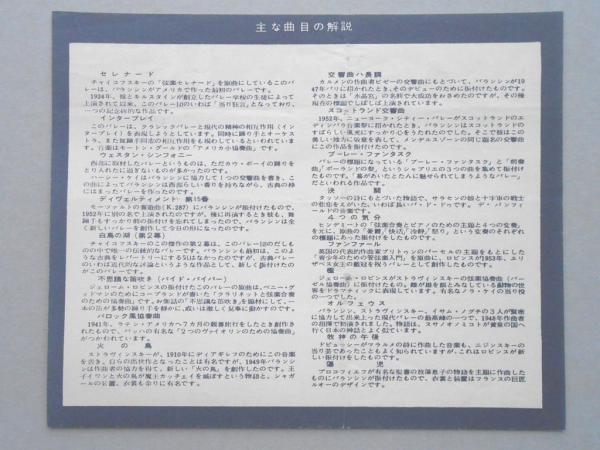 主な曲目の解説
セレナード
チャイコフスキーの「弦楽セレナード」を原曲にしているこのバ
レーは、バランシンがアメリカで作った最初のバレーです。
1934年、彼とキルスタインが創立したバレー学校の生徒によって
上演されて以来、このバレー団のいわば「当り狂言」となっており、
一つの記念碑的な作品です。
インタープレイ
このバレーは、クラシックバレーと現代の精神の相互作用（イン
タープレイ）を表現しようとしています。同時に踊り手とオーケス
トラ、また舞踊手同志の相互作用をも現わしているといわれていま
す。音楽はモートン・グールドの「アメリカ小協奏曲」です。
ウェスタン・シンフォニー
西部に取材したバレーというものは、ただカウ・ボーイの踊りを
とり入れたに過ぎないものが多かったのです。
ハーシー・ケイはバランシンに協力して1つの交響曲を書き、こ
の曲によってバランシンは西部らしい香りを持ちながら、古典の枠
にはまったバレーを作ったのです。
ディヴェルティメント 第15番
モーツァルトの喜遊曲（K.287）にバランシンが振付たもので、
1952年に別の名で上演されたのですが、後に再演するとき彼も、舞
踊手もすっかり前の振付けを忘れてしまったので、バランシンは全
く新しいバレーを創作して今日の形になったのです。
白鳥の湖（第2幕）
チャイコフスキーのこの傑作の第2幕は、このバレー団のだしも
のの中で唯一の伝統的なバレーです。バランシンも最初は、このよ
うな古典をレパートリーにする気はなかったのですが、古典バレー
のいわば近代的な評論というような作品として、新しく振付けたの
がこのバレーです。
不思議な笛吹き（パイド・パイパー）
ジェローム・ロビンスの振付けたこのバレーの原曲は、ベニー・グ
ッドマンのためにコープランドが書いた「クラリネットと弦楽合奏
のための協奏曲」です。お伽話の「不思議な笛吹き」を脚材にして、一
本の笛が多勢の踊り手を静かに、或いは激しく見事に動かすのです。
バロック風協奏曲
1941年、ラテン・アメリカへ7カ月の親善旅行をしたとき創作さ
れたもので、バッハの有名な「2つのヴァイオリンのための協奏曲」
がつかわれています。
火の鳥
ストラヴィンスキーが、1910年にディアギレフのためにこの音楽
を書き、自らの出世作となったことは有名ですが、1949年バランシ
ンは作曲者の協力を得て、新しい「火の鳥」を創作したのです。王
子イワンと火の鳥が魔王カッチェイを滅ぼすという物語と、シャガ
ールの装置、衣裳も余りに有名です。
交響曲ハ長調
カルメンの作曲者ビゼーの交響曲にもとづいて、バランシンが19
47年パリに招かれたとき、そのデビューのために振付けたものです。
そのときは「水晶宮」の名前で大成功をおさめたのですが、その後
現在の標題でしばしば上演されています。
スコットランド交響曲
1952年、ニューヨーク・シティー・バレーがスコットランドのエ
ディンバラ音楽祭に招かれたとき、バランシンはスコットランドの
すばらしい風光にすっかり心をうたれたのでした。そこで彼はこの
美しい地方に敬意を表して、メンデルスゾーンの同じ題名の交響曲
にこの作品を振付けたのです。
ブーレー・ファンタスク
バレーの標題になっている「ブーレー・ファンタスク」と「前奏
曲」「ポーランドの祭」というシャブリエの3つの曲を集めて振付け
たものです。「幕があいたとたんに魅せられてしまうようなバレー」
だといわれる作品です。
決闘
タッソーの詩にもとづいた物語で、サラセンの娘と十字軍の戦士
の悲恋をえがいた、いわば長いパ・ド・ドゥです。デ・バンフィ
ールドの音楽です。
4つの気分
ヒンデミートの「弦楽合奏とピアノのための主題と4つの変奏」
を元に、原曲の「憂鬱、快活、冷静、怒り」という変奏のそれぞれ
の標題にあった振付けをしたものです。
ファンファール
英国の代表的作曲家ブリットゥンのパーセルの主題をもとにした
「青少年のための管弦楽入門」を原曲に、ロビンスが1953年、エリ
ザベス女王の戴冠を祝うバレーとして創作したものです。
檻
ジェローム・ロビンスがストラヴィンスキーの弦楽協奏曲（バー
ゼル協奏曲）に振付けたもの。雌が雄を餌とみなしている動物の世
界をドラマティックに表現しています。有名なノラ・ケイの当り役
の一つでした。
オルフェウス
バランシン、ストラヴィンスキー、イサム・ノグチの3人が緊密
に協力して出来上った現代バレーの最高峰の一つで、1948年作曲者
の指揮で初演されました。物語は、スサノオノミコトが黄泉の国へ
行く日本の神話とよく似ています。
牧神の午後
ドビュッシーがマラルメの詩に作曲した音楽も、ニジンスキーの
当り芸であったこともよく知られていますが、これはロビンスが新
しい振付けをしたものです。
蕩児
プロコフィエフが有名な聖書の放蕩息子の物語を主題に作曲した
ものにバランシンが振付けたもので、衣裳と装置はフランスの巨匠
ルオーのデザインです。